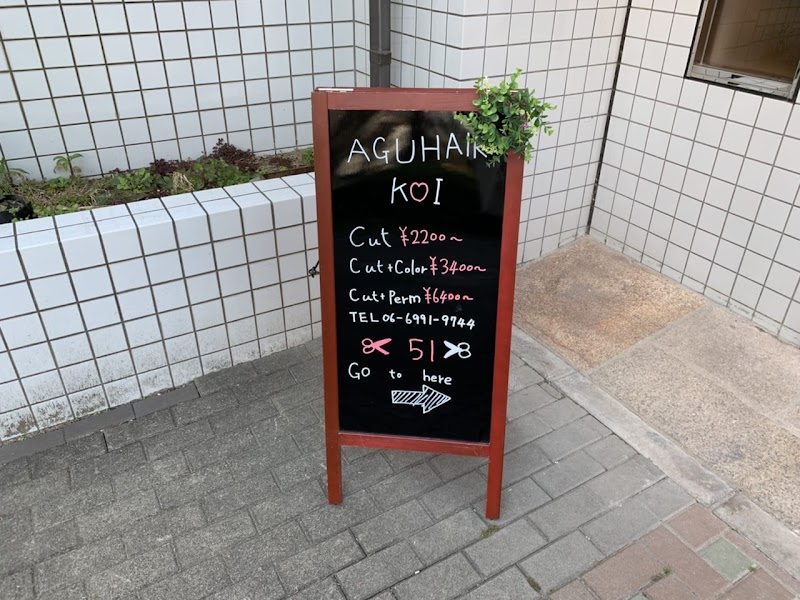 AGUHAIR
K♡I
Cut ¥2200〜
Cut+Color ¥3400〜
Cut+Perm ¥6400〜
TEL 06-6991-9744
51
GO to here